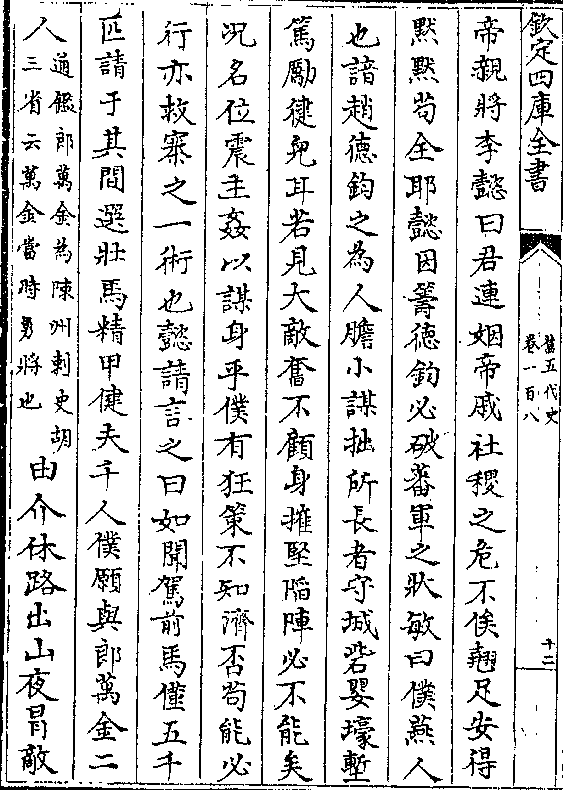 欽定四庫全書
舊五代史
卷一百八
十二
帝親將李懿曰君連姻帝戚社稷之危不俟翹足安得
黙黙苟全耶懿因籌徳鈞必破蕃軍之狀敏曰僕燕人
也諳趙徳鈞之為人膽小謀拙所長者守城砦嬰壕塹
篤勵健兒耳若見大敵奮不顧身摧堅陷陣必不能矣
况名位震主姦以謀身乎僕有狂策不知濟否苟能必
行亦救寨之一術也懿請言之曰如聞駕前馬僅五千
匹請于其間選壯馬精甲健夫千人僕願與郎萬金二
人通鑑郎萬金為陳州刺史胡
三省云萬金當時勇將也
由介休路出山夜冒敵